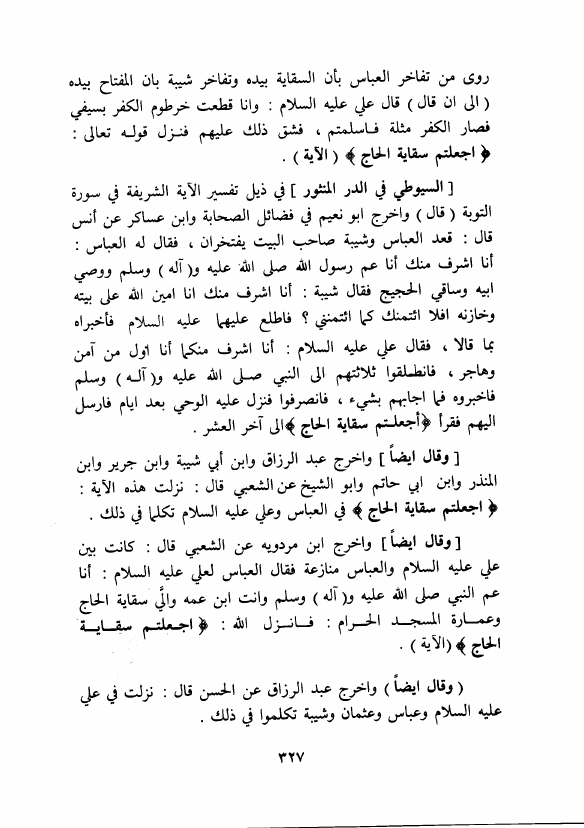 روى من تفاخر العباس بأن السقاية بيده وتفاخر شيبة بان المفتاح بيده
( الى ان قال ) قال علي عليه السلام : وانا قطعت خرطوم الكفر بسيفي
فصار الكفر مثلة فـاسلمتم ، فشق ذلك عليهم فنـزل قولـه تعالى :
﴿ اجعلتم سقاية الحاج ﴾ ( الآية ) .
[ السيوطي في الدر المنثور ] في ذيل تفسير الآية الشريفة في سورة
التوبة ( قال ) واخرج ابو نعيم في فضائل الصحابة وابن عساكر عن أنس
قال : قعد العباس وشيبة صاحب البيت يفتخران ، فقال له العباس :
أنا اشرف منك أنا عم رسول الله صلى الله عليه و(آله ) وسلم ووصي
ابيه وساقي الحجيج فقال شيبة : أنا اشرف منك انا امين الله على بيته
وخازنه افلا ائتمنك كما ائتمنني ؟ فاطلع عليهما عليه السلام فأخبراه
بما قالا ، فقال علي عليه السلام : أنا اشرف منكما أنا اول من آمن
وهاجر ، فانطلقوا ثلاثتهم الى النبي صـلى الله عليه و(آلـه ) وسلم
فاخبروه فما اجابهم بشيء ، فانصرفوا فنزل عليه الوحي بعد ايام فارسل
اليهم فقرأ ﴿أجعلـتم سقاية الحاج ﴾الى آخر العشر .
[ وقال ايضاً ] واخرج عبد الرزاق وابن أبي شيبة وابن جرير وابن
المنذر وابن ابي حاتم وابو الشيخ عن الشعبي قال : نزلت هذه الآية :
﴿ اجعلتم سقاية الحاج ﴾ في العباس وعلي عليه السلام تكلما في ذلك .
[ وقال ايضاً ] واخرج ابن مردويه عن الشعبي قال : كانت بين
علي عليه السلام والعباس منازعة فقال العباس لعلي عليه السلام : أنا
عم النبي صلى الله عليه و( آله ) وسلم وانت ابن عمه والَّي سقاية الحاج
وعمـارة المسجـد الحـرام : فـانـزل الله : ﴿ اجـعلتـم سقـايـة
الحاج ﴾ (الآية ) .
( وقال ايضاً ) واخرج عبد الرزاق عن الحسن قال : نزلت في علي
عليه السلام وعباس وعثمان وشيبة تكلموا في ذلك .
٣٢٧